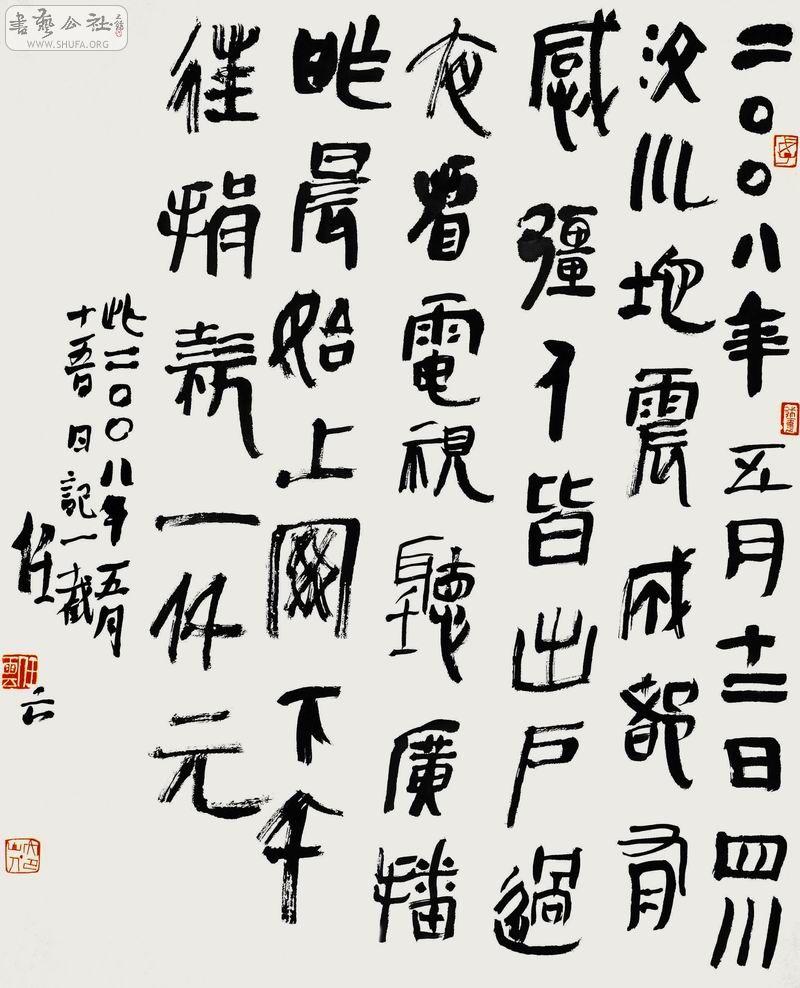 書藝公社
WWW.SHUFA.ORG
二〇〇八年五月十二日四川
汶川地震成都有
感彊皆出户過
夜看電視聽廣播
昨晨始上國下午
往捐款一仟元
此二〇〇八年五月
十五日日記一截
任云